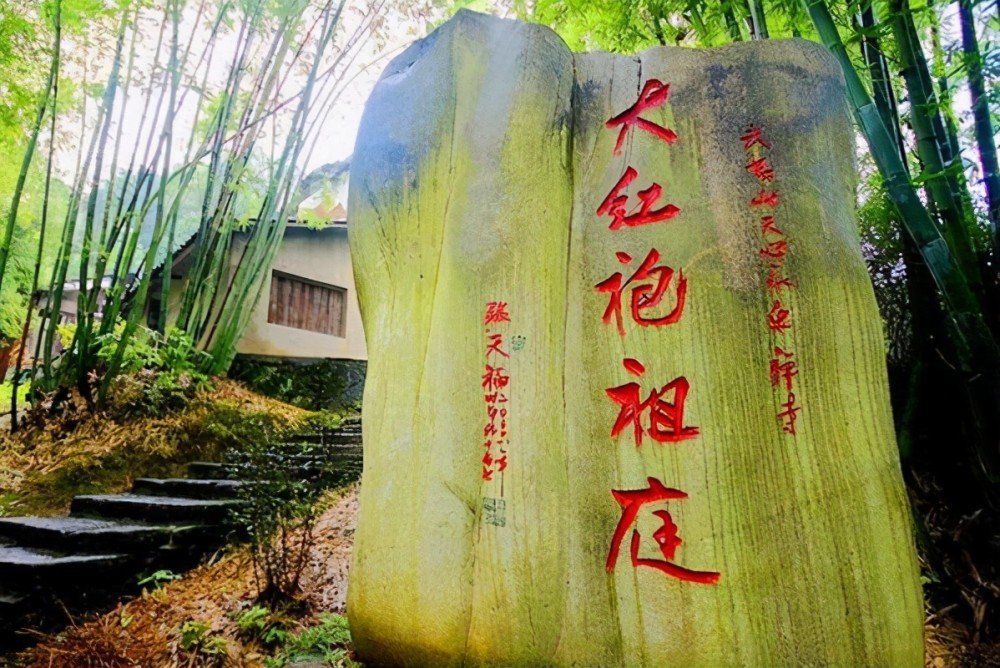 武夷山天心永乐禅寺
大红袍祖庭
張天福